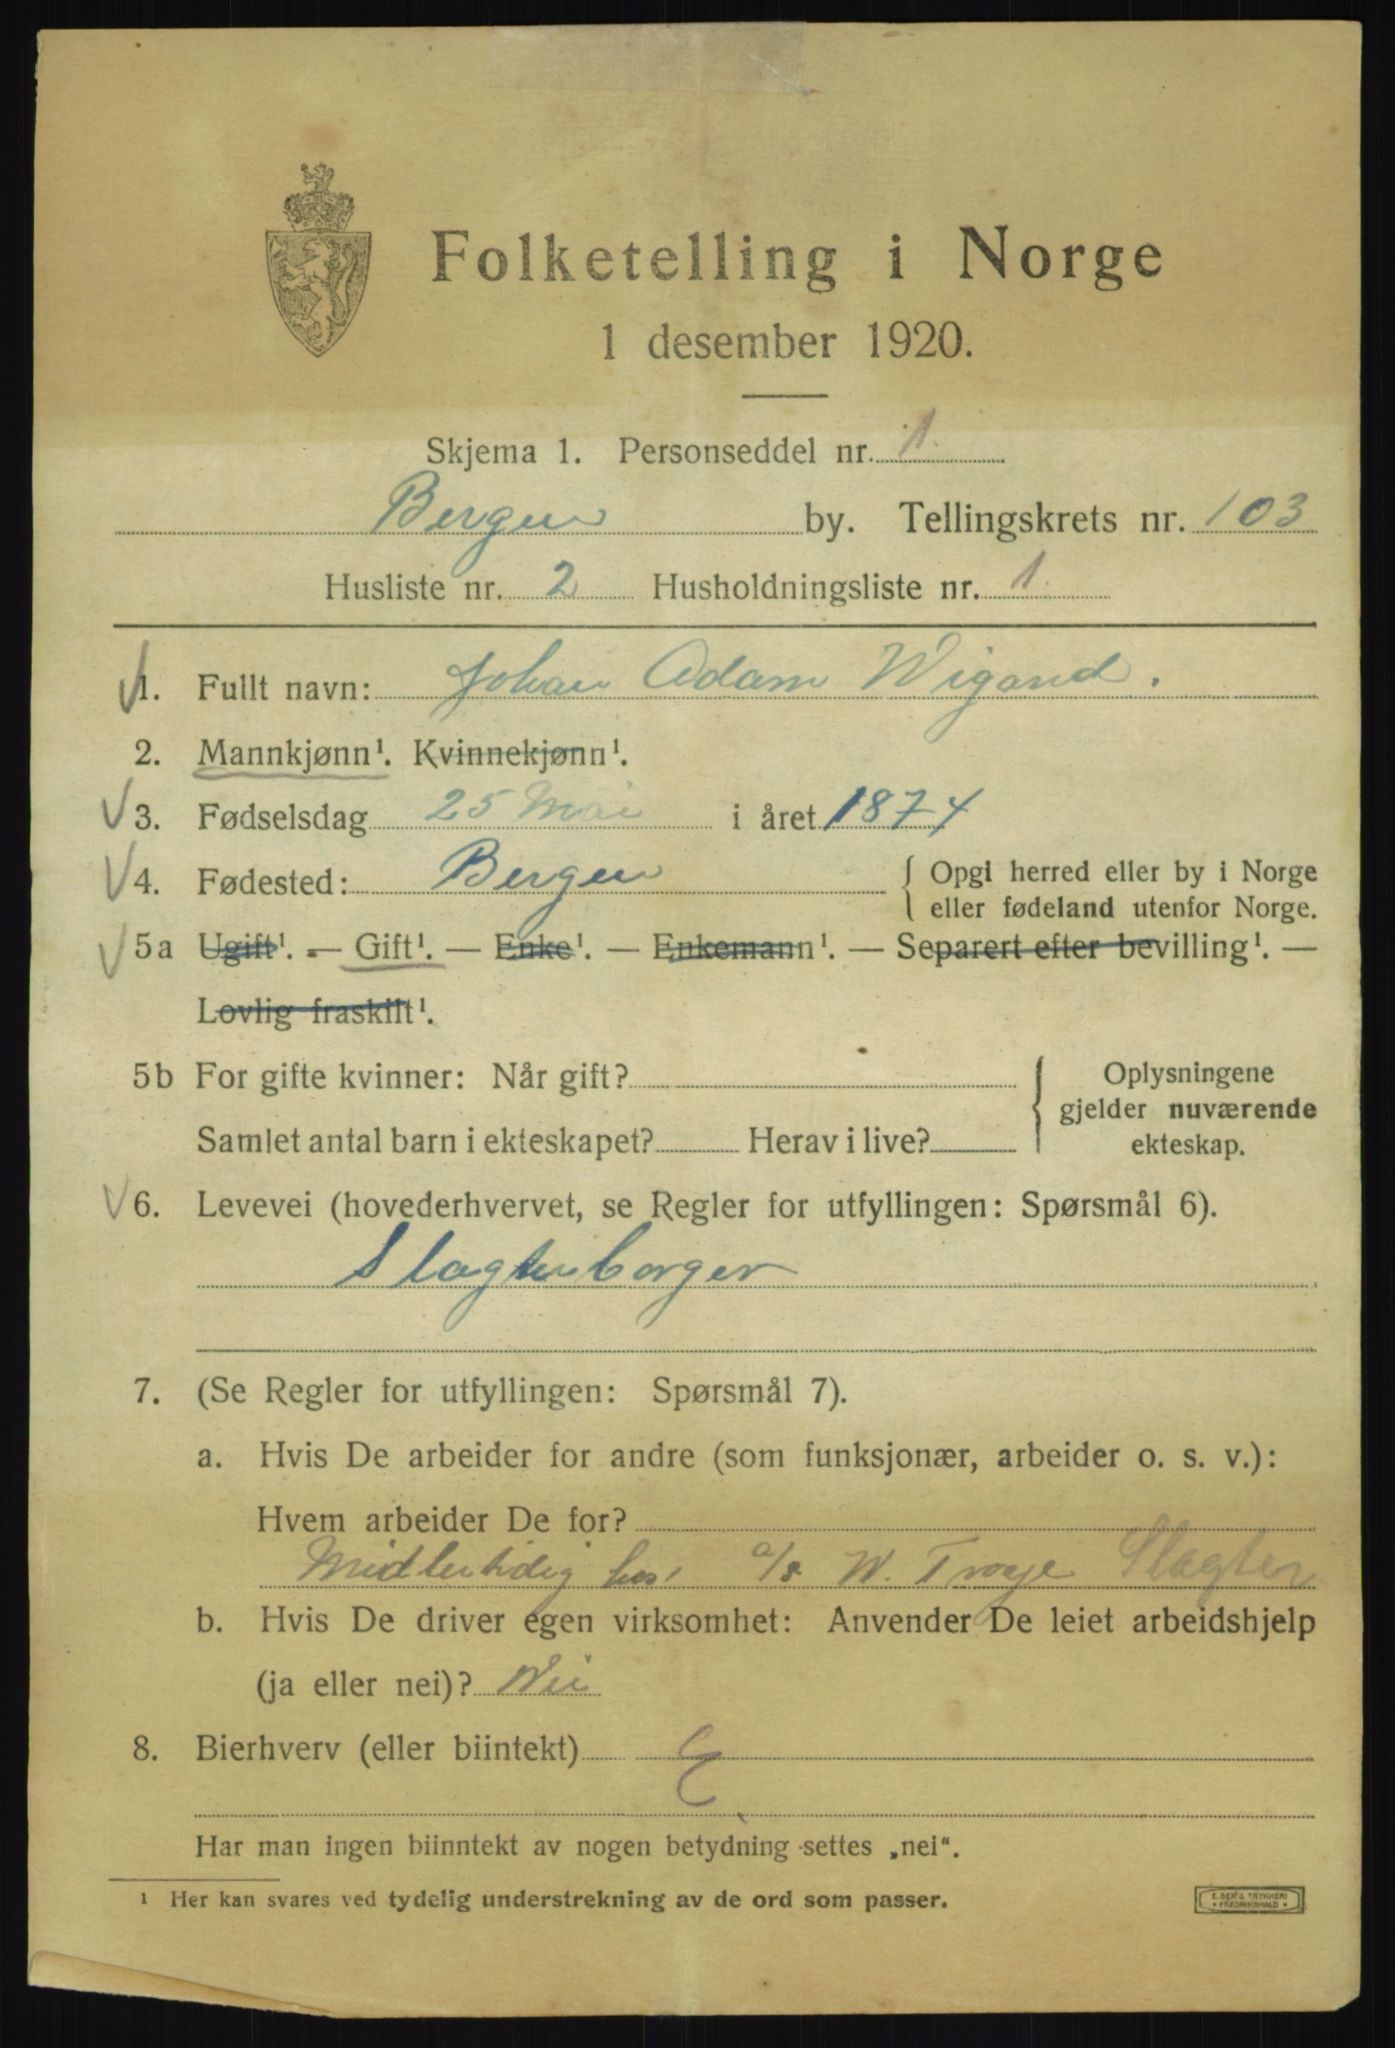 Folketelling i Norge
1 desember 1920.
Skjema 1. Personseddel nr. 1
Bergen by. Tellingskrets nr. 103
Husliste nr. 2 Husholdningsliste nr. 1
1. Fullt navn: Johan Adam Wigand.
2. Mannkjønn¹. Kvinnekjønn¹.
3. Fødselsdag 25 Mai i året 1874
4. Fødested: Bergen { Opgi herred eller by i Norge
eller fødeland utenfor Norge.
5a Ugift¹. — Gift¹. — Enke¹. — Enkemann¹. — Separert efter bevilling¹. —
Lovlig fraskilt¹.
5b For gifte kvinner: Når gift? { Oplysningene
gjelder nuværende
Samlet antal barn i ekteskapet? Herav i live? ekteskap.
6. Levevei (hovederhvervet, se Regler for utfyllingen: Spørsmål 6).
Slagterborger
7. (Se Regler for utfyllingen: Spørsmål 7).
a. Hvis De arbeider for andre (som funksjonær, arbeider o. s. v.):
Hvem arbeider De for?
Midlertidig hos a/s W. Troye Slagter
b. Hvis De driver egen virksomhet: Anvender De leiet arbeidshjelp
(ja eller nei)? Nei
8. Bierhverv (eller biintekt)
Har man ingen biinntekt av nogen betydning settes „nei“.
¹ Her kan svares ved tydelig understrekning av de ord som passer.
E. SEM'S TRYKKERI
FREDRIKSHALD